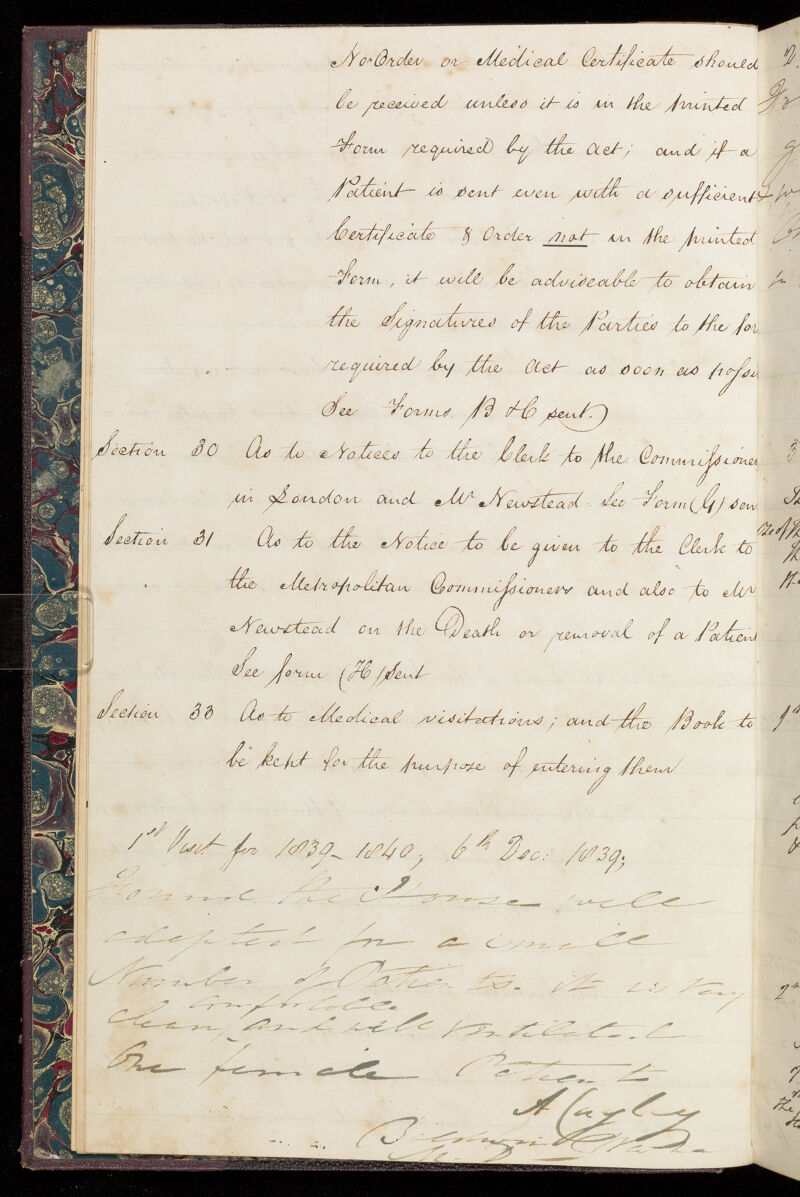 No Order or Medical Certificate should
be received unless it is in the printed
Form required by the Act; and if a
Patient is sent even with a sufficient
Certificate & Order not in the printed
Form, it will be adviseable to obtain
the Signatures of the Parties to the for
required by the Act as soon as possi
See Forms B & C sent.)
Section 30 As to Notices to the Clerk to the Commissioner
in London and Mr Newstead. See Form (G) sen
Section 31 As to the Notice to be given to the Clerk to
the Metropolitan Commissioners and also to Mr
Newstead on the Death or removal of a Patient
See form (H) sent
Section 33 As to Medical visitations; and the Book to
be kept for the purpose of entering them
1st Visit for 1839-1840; 6th Dec: 1839;
Found the House well
adapted for a small
Number of Patients. it is very
comfortable
clean, and well ventilated
One female Patient
A Cayley